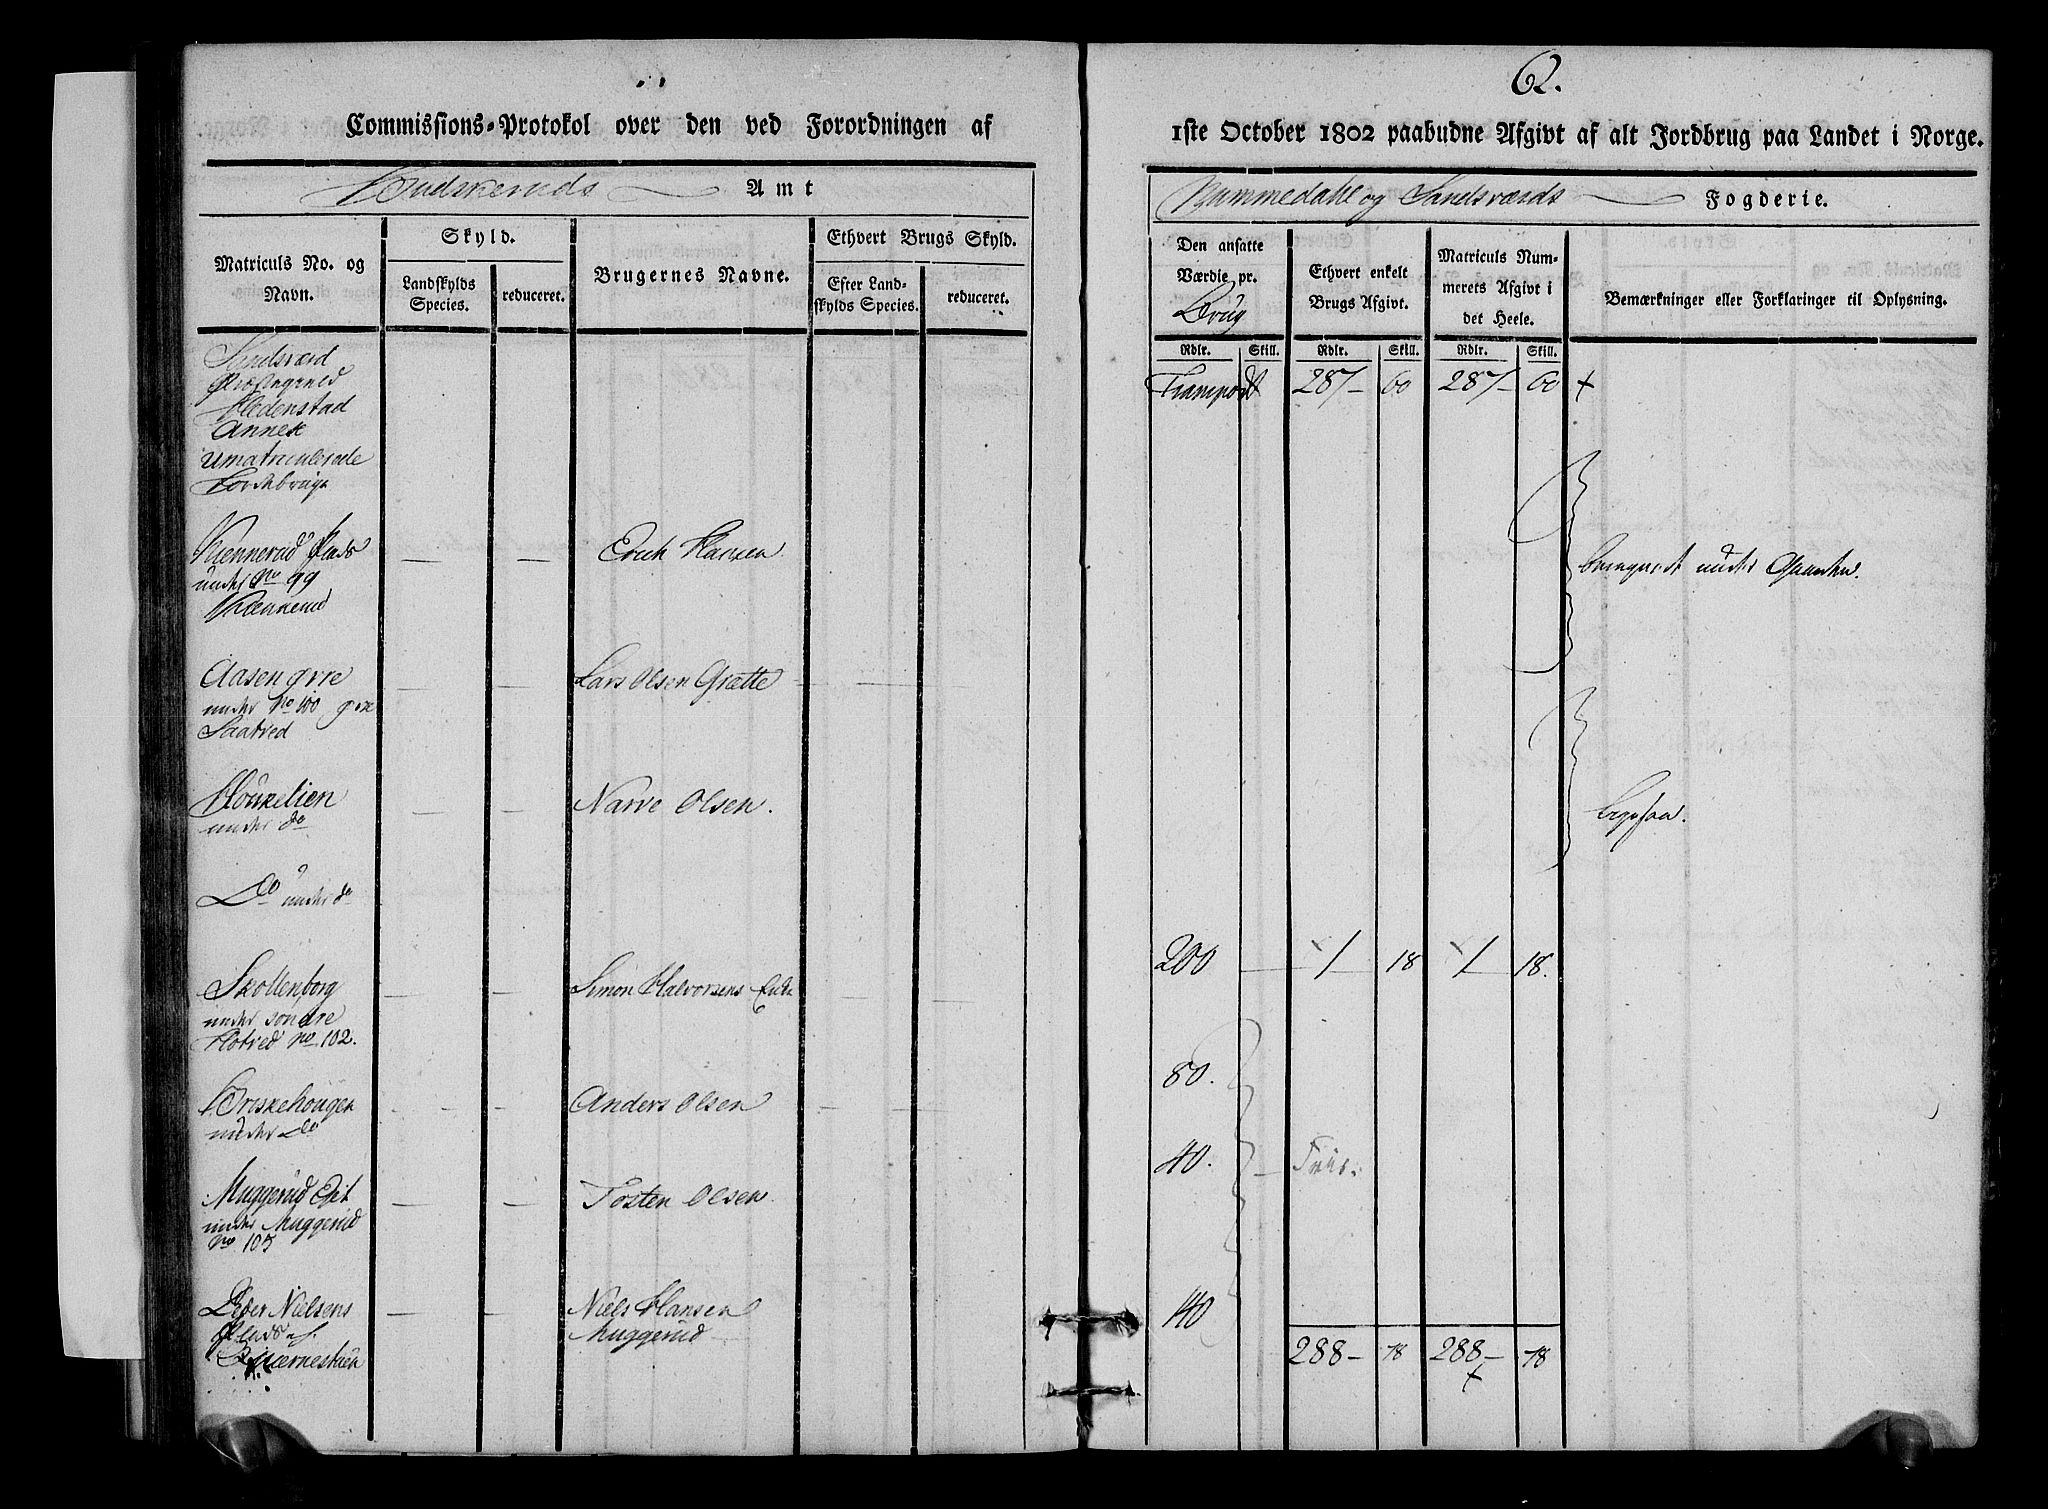 62.
Commissions-Protokol over den ved Forordningen af
1ste October 1802 paabudne Afgivt af alt Jordbrug paa Landet i Norge.
Budskeruds Amt
Nummedahl og Sandsværds Fogderie.
Matriculs No. og Navn.
Skyld.
Landskylds Species.
reduceret.
Brugernes Navne.
Ethvert Brugs Skyld.
Efter Landskylds Species.
reduceret.
Den ansatte Værdie pr. Brug
Ethvert enkelt Brugs Afgivt.
Matriculs Nummerets Afgivt i det Heele.
Bemærkninger eller Forklaringer til Oplysning.
Rdlr. Skill. Rdlr. Skill. Rdlr. Skill.
Sandsværd
Præstegield
Hedenstad
Annex
Umatriculerede
Jordebruge
Transport 287 – 60 287 – 60 +
Plads — — Erich Hansen
under No 99
Aasen øvre — — Lars Olsen Grætte —
under No 100 øvre
Saatved
under do — — Narve Olsen.
Do under do
Skollenborg — — Simon Halvorsens Enke — 200 — 1 18 1 18.
under søndre
Hotved No 102.
Briskehougen — — Anders Olsen — — 80.
under Do
Muggerud Eget — — Tosten Olsen 40. — Frie.
under Muggerud
No 105
Peder Nielsens — — Niels Hansen 40
Plads af Muggerud
288 – 78 288 – 78
+